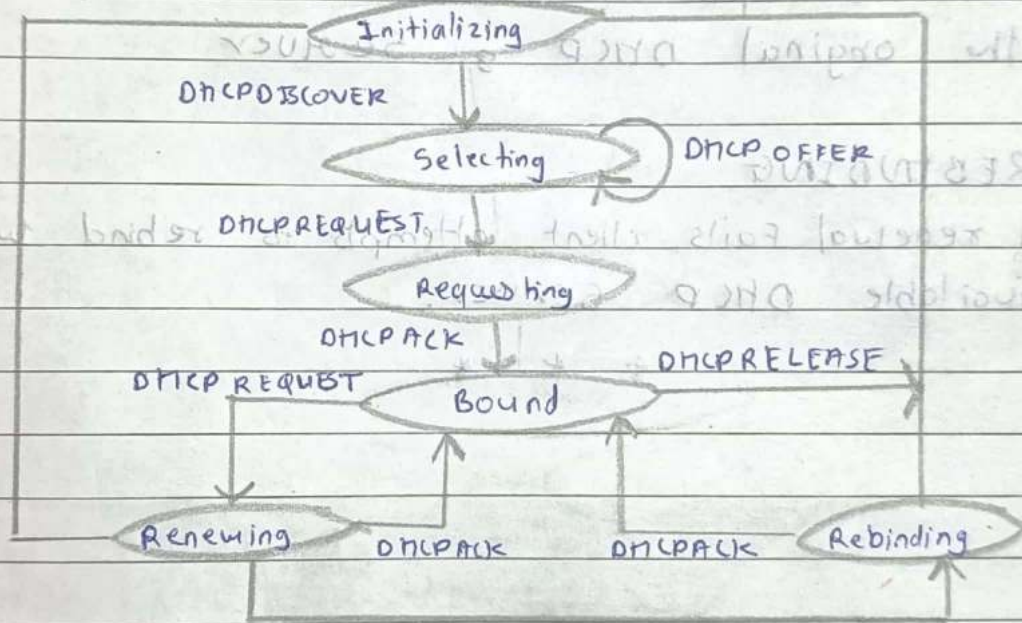 Initializing
DHCPDISCOVER
Selecting
DHCP OFFER
DHCPREQUEST
Requesting
DHCPACK
DHCPRELEASE
DHCP REQUEST
Bound
Renewing
DHCPACK
DHCPACK
Rebinding